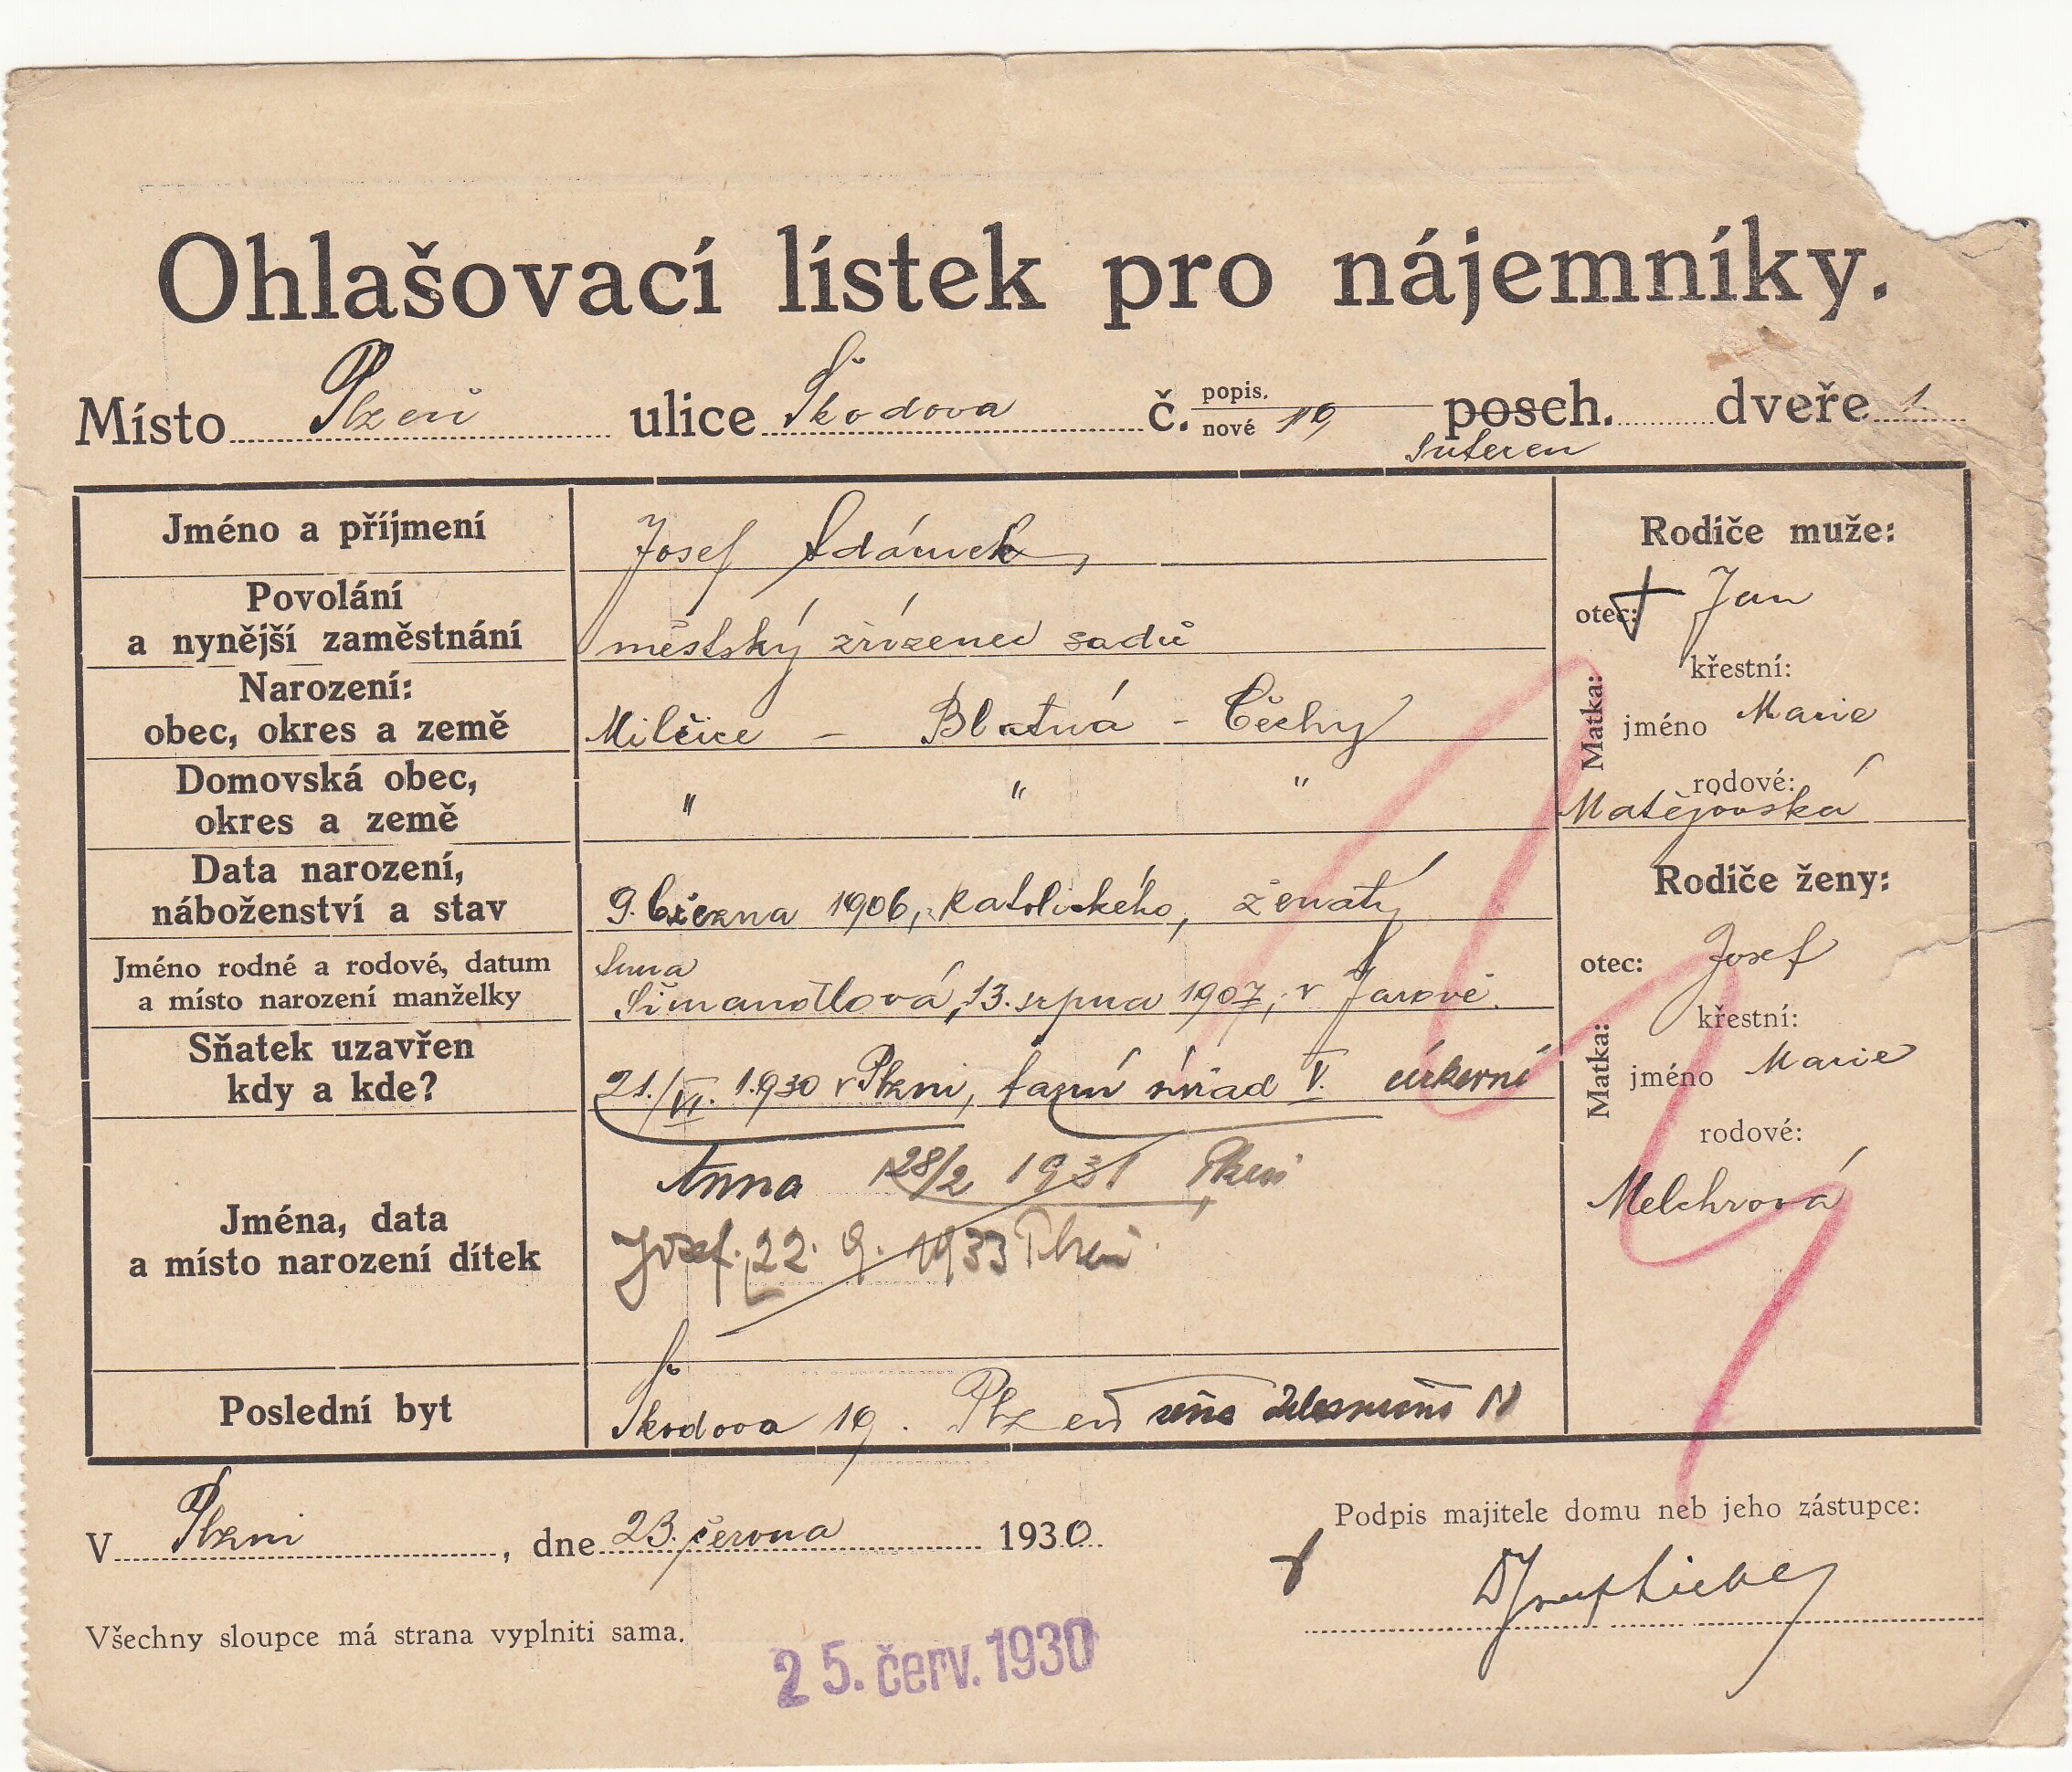 Ohlašovací lístek pro nájemníky.
Místo Plzeň ulice Škodova č. popis. nové 19 posch. dveře 1
Suteren
Jméno a příjmení
Josef Adámek
Povolání
a nynější zaměstnání
městský zřízenec sadů
Narození:
obec, okres a země
Milčice - Blatná - Čechy
Domovská obec,
okres a země
" " "
Data narození,
náboženství a stav
9. března 1906, katolického, ženatý
Jméno rodné a rodové, datum
a místo narození manželky
Anna
Šimandlová, 13. srpna 1907, v Jarově.
Sňatek uzavřen
kdy a kde?
21./VI. 1930 v Plzni, farní úřad V. církevní
Jména, data
a místo narození dítek
Anna 28/2 1931 Plzeň
Josef. 22. 9. 1933 Plzeň.
Poslední byt
Škodova 19. Plzeň
Rodiče muže:
otec: Jan
Matka:
křestní:
jméno Marie
rodové:
Matějovská
Rodiče ženy:
otec: Josef
Matka:
křestní:
jméno Marie
rodové:
Melchrová
V Plzni, dne 23. června 1930.
Podpis majitele domu neb jeho zástupce:
Všechny sloupce má strana vyplniti sama.
25. červ. 1930